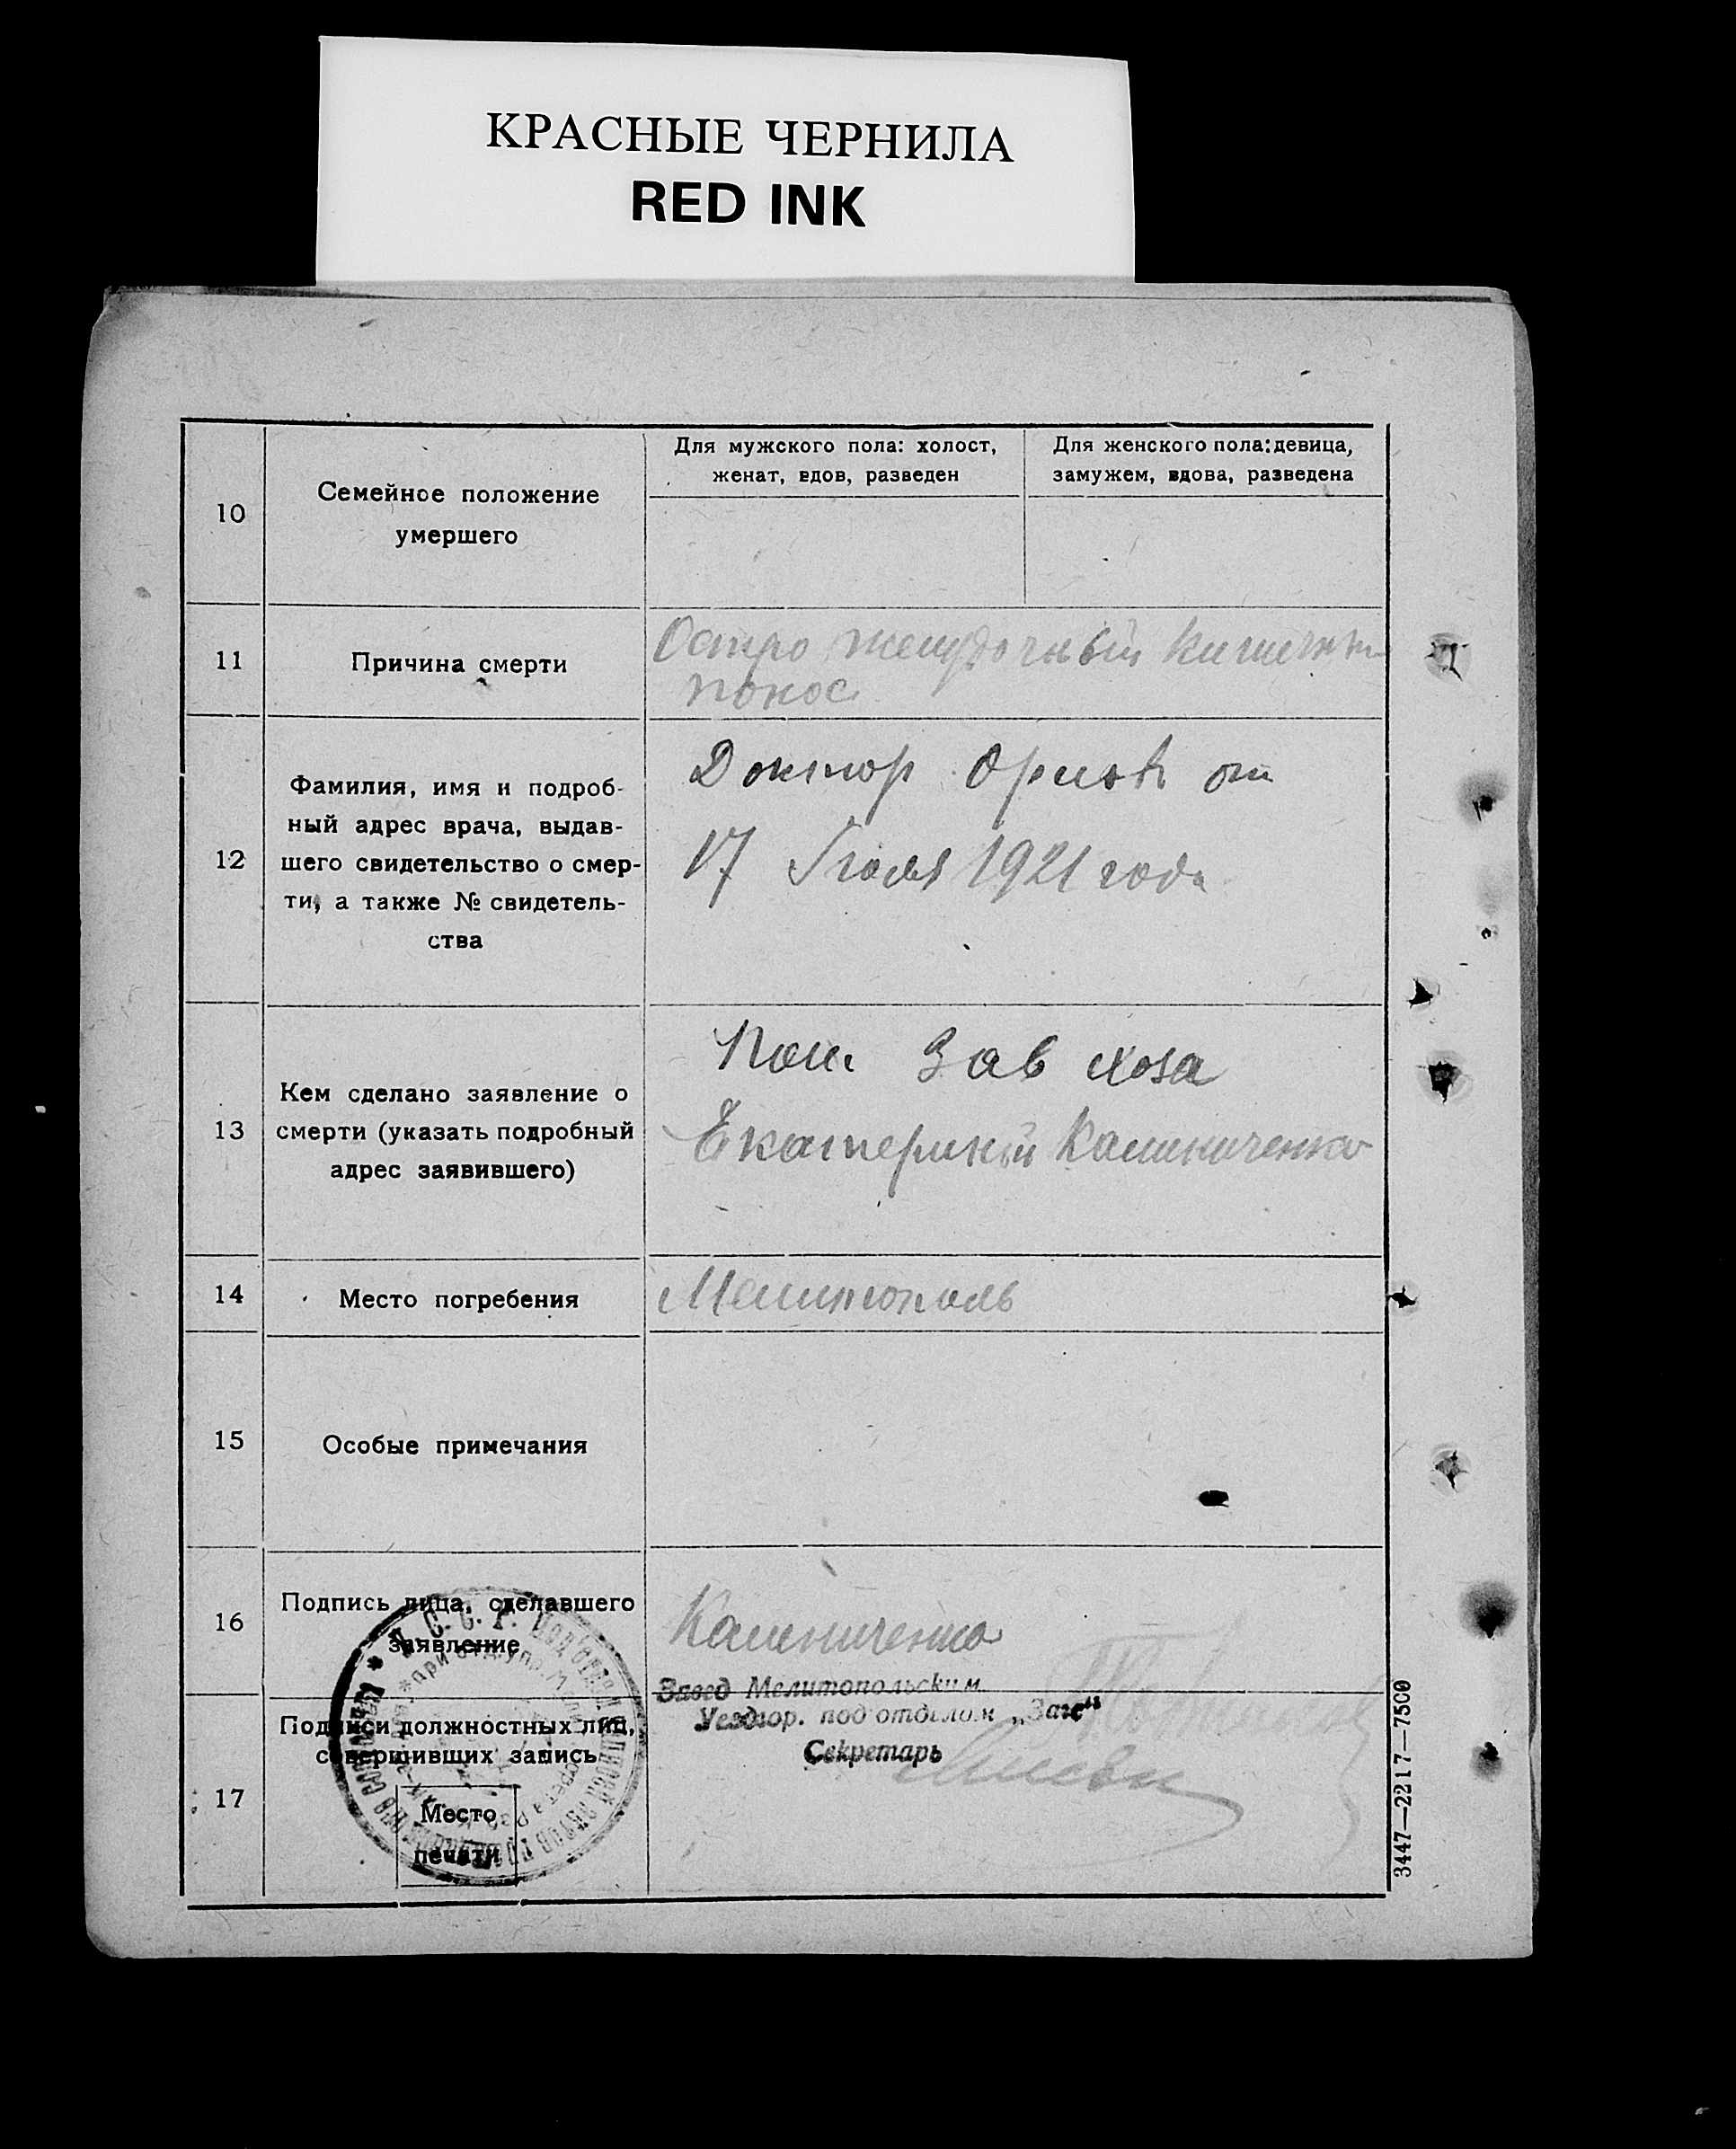 КРАСНЫЕ ЧЕРНИЛА
RED INK
10
Семейное положение
умершего
Для мужского пола: холост,
женат, вдов, разведен
Для женского пола: девица,
замужем, вдова, разведена
11
Причина смерти
Остро желудочный
понос
12
Фамилия, имя и подроб-
ный адрес врача, выдав-
шего свидетельство о смер-
ти, а также № свидетель-
ства
Доктор от
17 Июля 1921 года
13
Кем сделано заявление о
смерти (указать подробный
адрес заявившего)
Пом. Зав хоза
Калиниченко
14
Место погребения
Мелитополь
15
Особые примечания
16
Подпись лица, сделавшего
заявление
Калиниченко
17
Подписи должностных лиц,
совершивших запись
Место
печати
Завед Мелитопольским
Уездгор. под'отделом „Загс“
Секретарь
3447—2217—7500